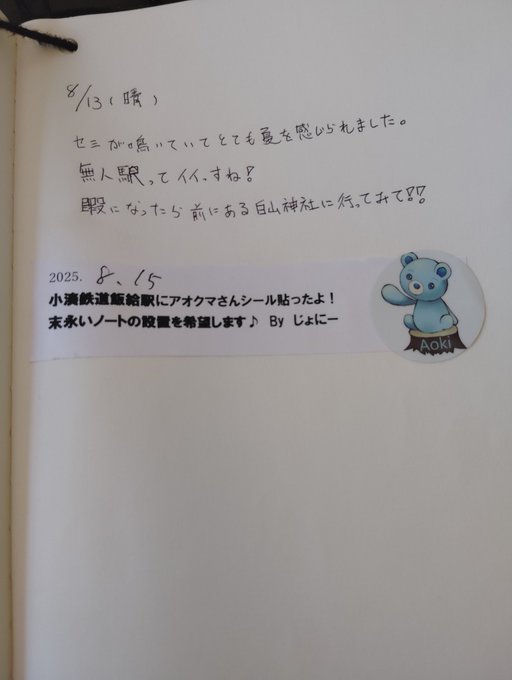 8/13(晴)
セミが鳴いていてとても夏を感じられました。
無人駅ってイイっすね!
暇になったら前にある白山神社に行ってみて!!
2025. 8.15
小湊鉄道飯給駅にアオクマさんシール貼ったよ！
末永いノートの設置を希望します♪ By じょにー
Aoki